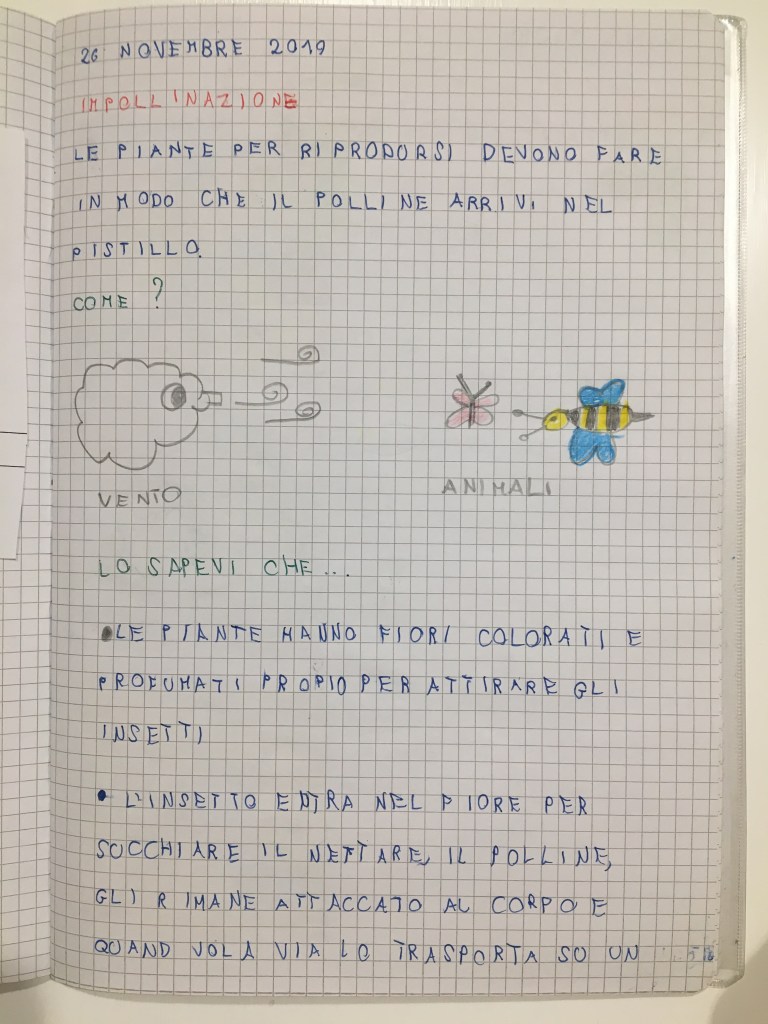 26 NOVEMBRE 2019
IMPOLLINAZIONE
LE PIANTE PER RIPRODURSI DEVONO FARE
IN MODO CHE IL POLLINE ARRIVI NEL
PISTILLO.
COME ?
VENTO
ANIMALI
LO SAPEVI CHE...
•LE PIANTE HANNO FIORI COLORATI E
PROFUMATI PROPIO PER ATTIRARE GLI
INSETTI
• L'INSETTO ENTRA NEL FIORE PER
SUCCHIARE IL NETTARE, IL POLLINE,
GLI RIMANE ATTACCATO AL CORPO E
QUAND VOLA VIA LO TRASPORTA SU UN